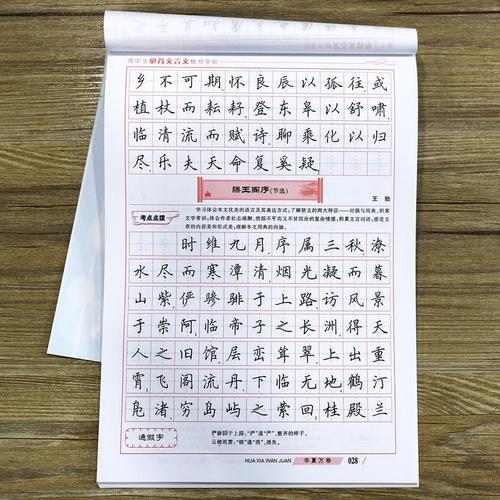 高中生必背文言文楷书字帖
乡不可期怀良辰以孤往或
植杖而耘耔登东皋以舒啸
临清流而赋诗聊乘化以归
尽乐夫天命复奚疑
滕王阁序(节选)
王 勃
考点点拨
学习体会本文优美的语言及其表达方式;了解骈文的两大特征——对偶与用典,积累
文学常识;体会作者壮志难酬、愤郁不平而又不甘沉沦的复杂情感;积累文言词语;感受文
章的内容美和形式美;理解本文用典的内涵。
时维九月序属三秋潦
水尽而寒潭清烟光凝而暮
山紫俨骖騑于上路访风景
于崇阿临帝子之长洲得天
人之旧馆层峦耸翠上出重
霄飞阁流丹下临无地鹤汀
凫渚穷岛屿之萦回桂殿兰
通假字
俨骖騑于上路:“俨”通“严”,整齐的样子。
云销雨霁:“销”通“消”,消失。
HUA XIA WAN JUAN
华夏万卷
028